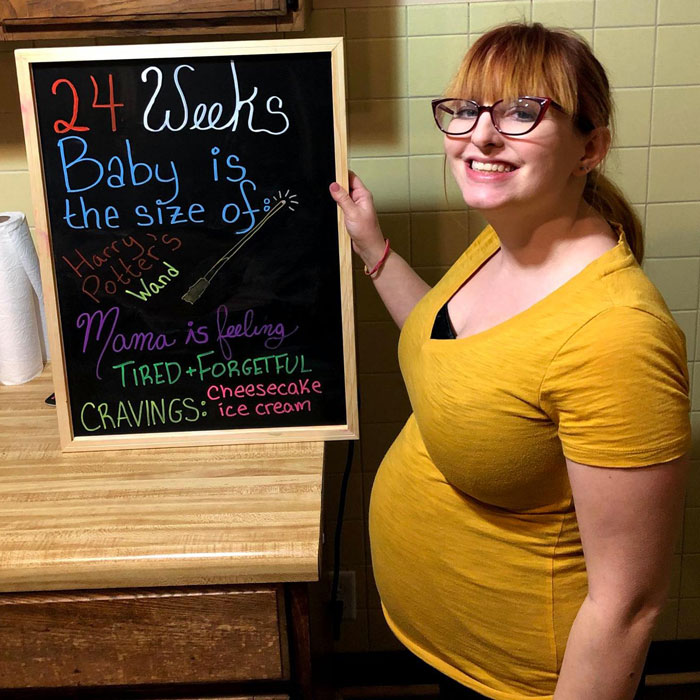 24 Weeks
Baby is
the size of:
Harry
Potter's
Wand
Mama is feeling
TIRED + FORGETFUL
CRAVINGS: cheesecake
ice cream